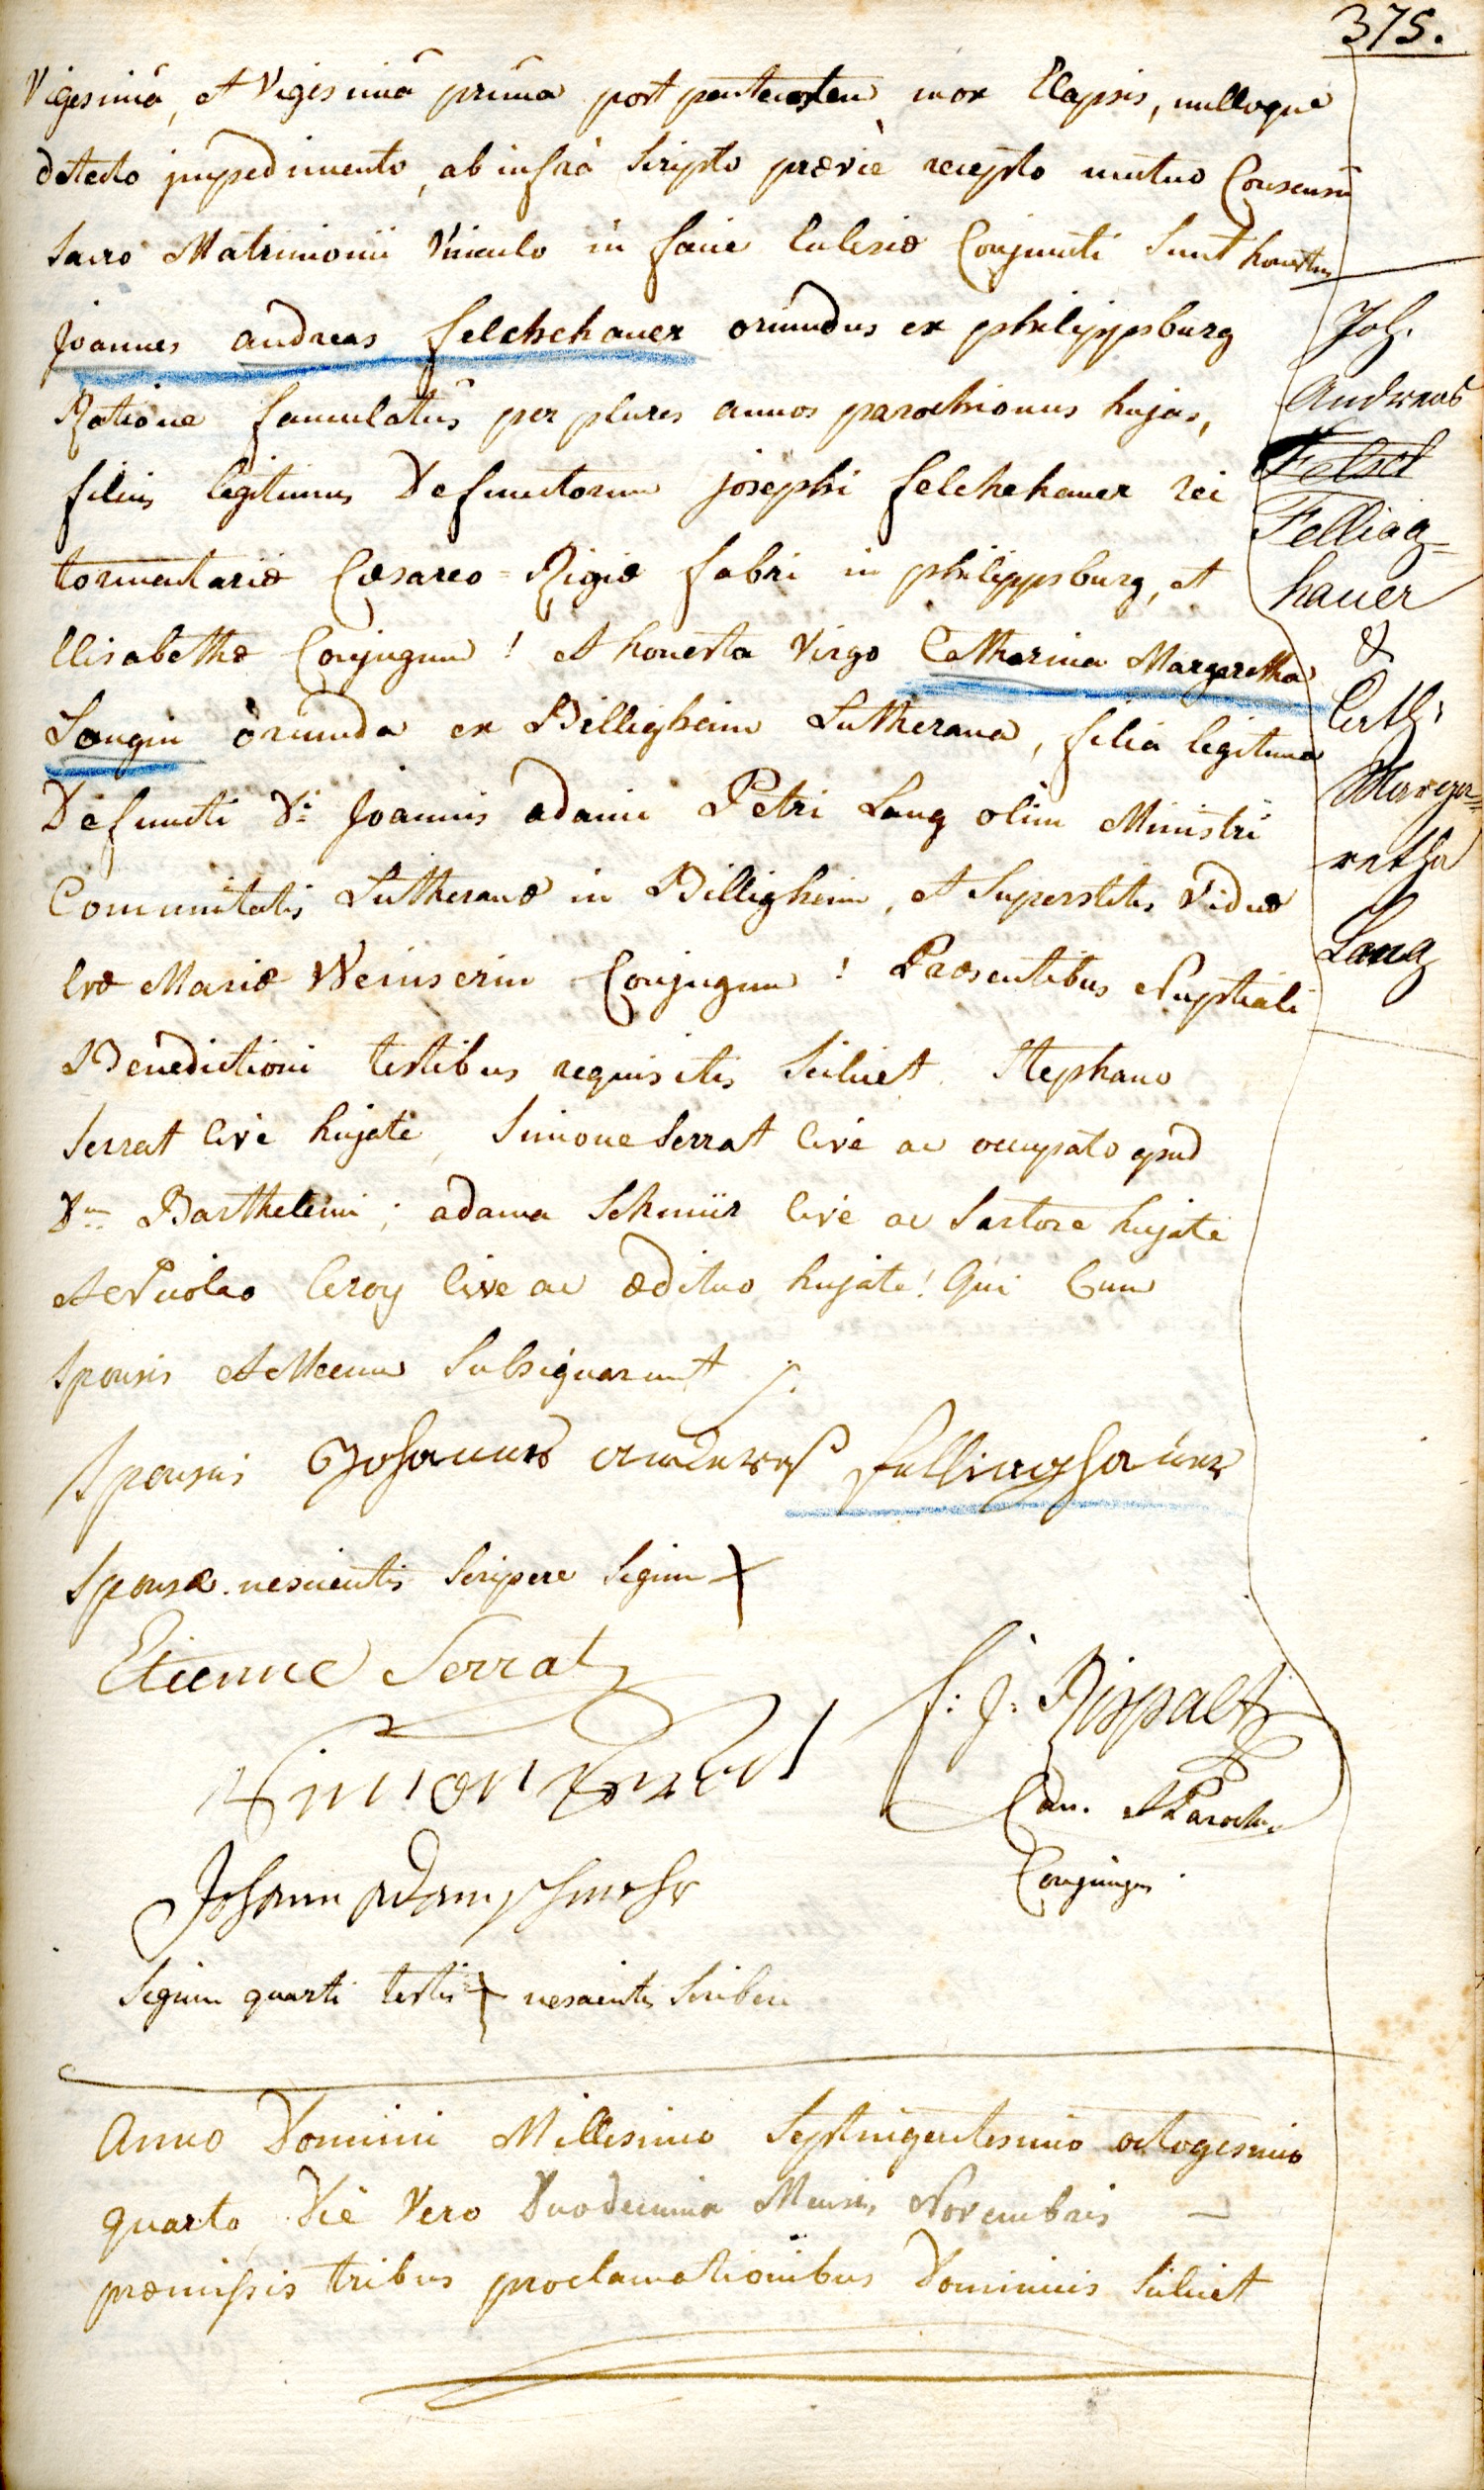 375.
Vigesimâ, et Vigesimâ primâ post pentecosten mox Elapsis, nulloque
detecto jmpedimento, ab infrà Scripto prævie recepto mutuo Consensu
Sacro Matrimonii Vinculo in facie Eclesiæ Conjuncti Sunt honestus
Joannes andreas felchehauer oriundus ex philippsburg
Ratione famulatûs per plures annos parochianus hujas,
filius legitimus Defunctorum josephi felchehauer rei
tormentariæ Cæsareo=Regiæ fabri in philippsburg, et
Elisabethæ Conjugum! et honesta Virgo Catharina Margaretha
Langin oriunda ex Billigheim Lutherana, filia legitima
Defuncti Di Joannis adami Petri Lang olim Ministri
Communitatis Lutheranæ in Billigheim, et Superstitis Viduæ
Evæ Mariæ Weinserin Conjugum! Præsentibus Nuptiali
Benedictioni testibus requisitis Scilicet Stephano
Serrat Cive hujate, Simone Serrat Cive ac occupato apud
Dm Barthelemi; adamo Schmür Cive ac Sartore hujate
et Nicolao Leroy Cive ac ædituo hujate! Qui Cum
Sponsis et Mecum Subsignarunt
Joh.
Andreas
Felsch
Felling-
hauer
&
Cath:
Marga=
retha
Lang
Sponsus Johannes andereas fellinghauer
Sponsæ nescientis Scripere Signum +
Etienne Serrat
Simon Serrat
f: J: Rispalt
Can. et Paroch.
Conjungens
Johann Adam Schmehr
Signum quarti testis + nescientis Scribere
Anno Domini Millesimo Septingentesimo octogesimo
quarto Die Vero Duodecima Mensis Novembris —
præmissis tribus proclamationibus Dominicis Scilicet